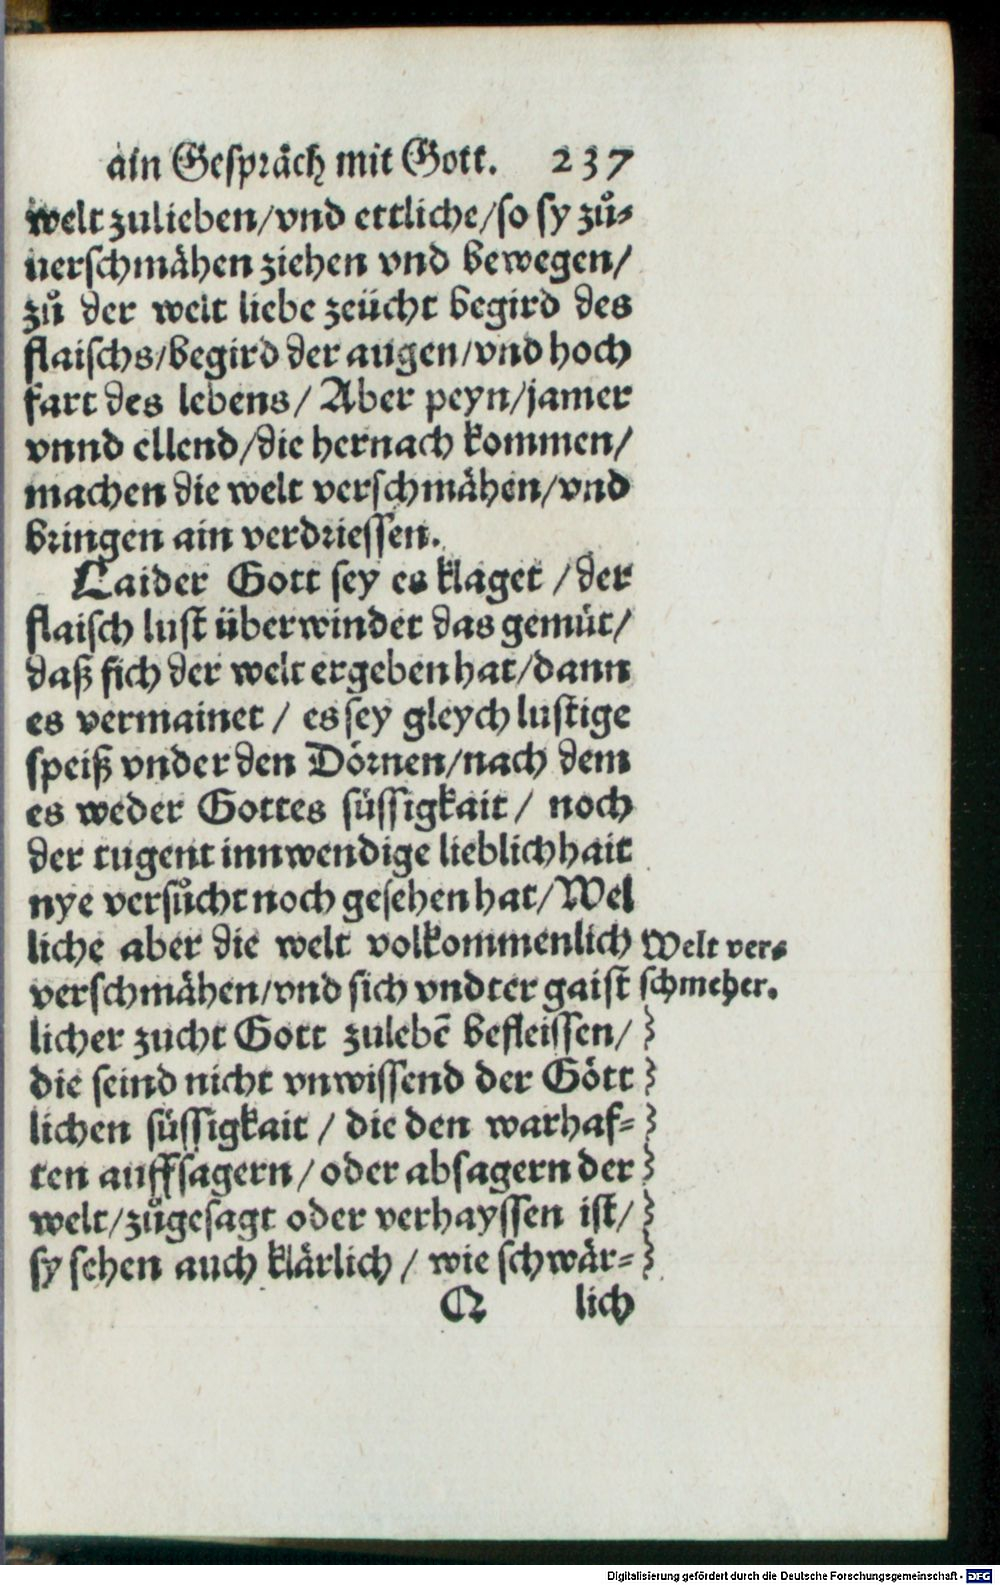 ain Gespräch mit Gott. 237
welt zulieben/vnd ettliche/so sy zů-
uerschmähen ziehen vnd bewegen/
zů der welt liebe zeücht begird des
flaischs/begird der augen/vnd hoch
fart des lebens/ Aber peyn/jamer
vnnd ellend/die hernach kommen/
machen die welt verschmähen/vnd
bringen ain verdriessen.
Laider Gott sey es klaget /der
flaisch lust überwindet das gemüt/
daß sich der welt ergeben hat/dann
es vermainet / es sey gleych lustige
speiß vnder den Dörnen/nach dem
es weder Gottes süssigkait / noch
der tugent innwendige lieblichhait
nye versůcht noch gesehen hat/Wel
liche aber die welt volkommenlich
Welt ver-
verschmähen/vnd sich vndter gaist
schmeher.
licher zucht Gott zulebē befleissen/
die seind nicht vnwissend der Gött
lichen süssigkait / die den warhaf-
ten auffsagern/oder absagern der
welt/zůgesagt oder verhayssen ist/
sy sehen auch klärlich / wie schwär-
Q lich
Digitalisierung gefördert durch die Deutsche Forschungsgemeinschaft - DFG